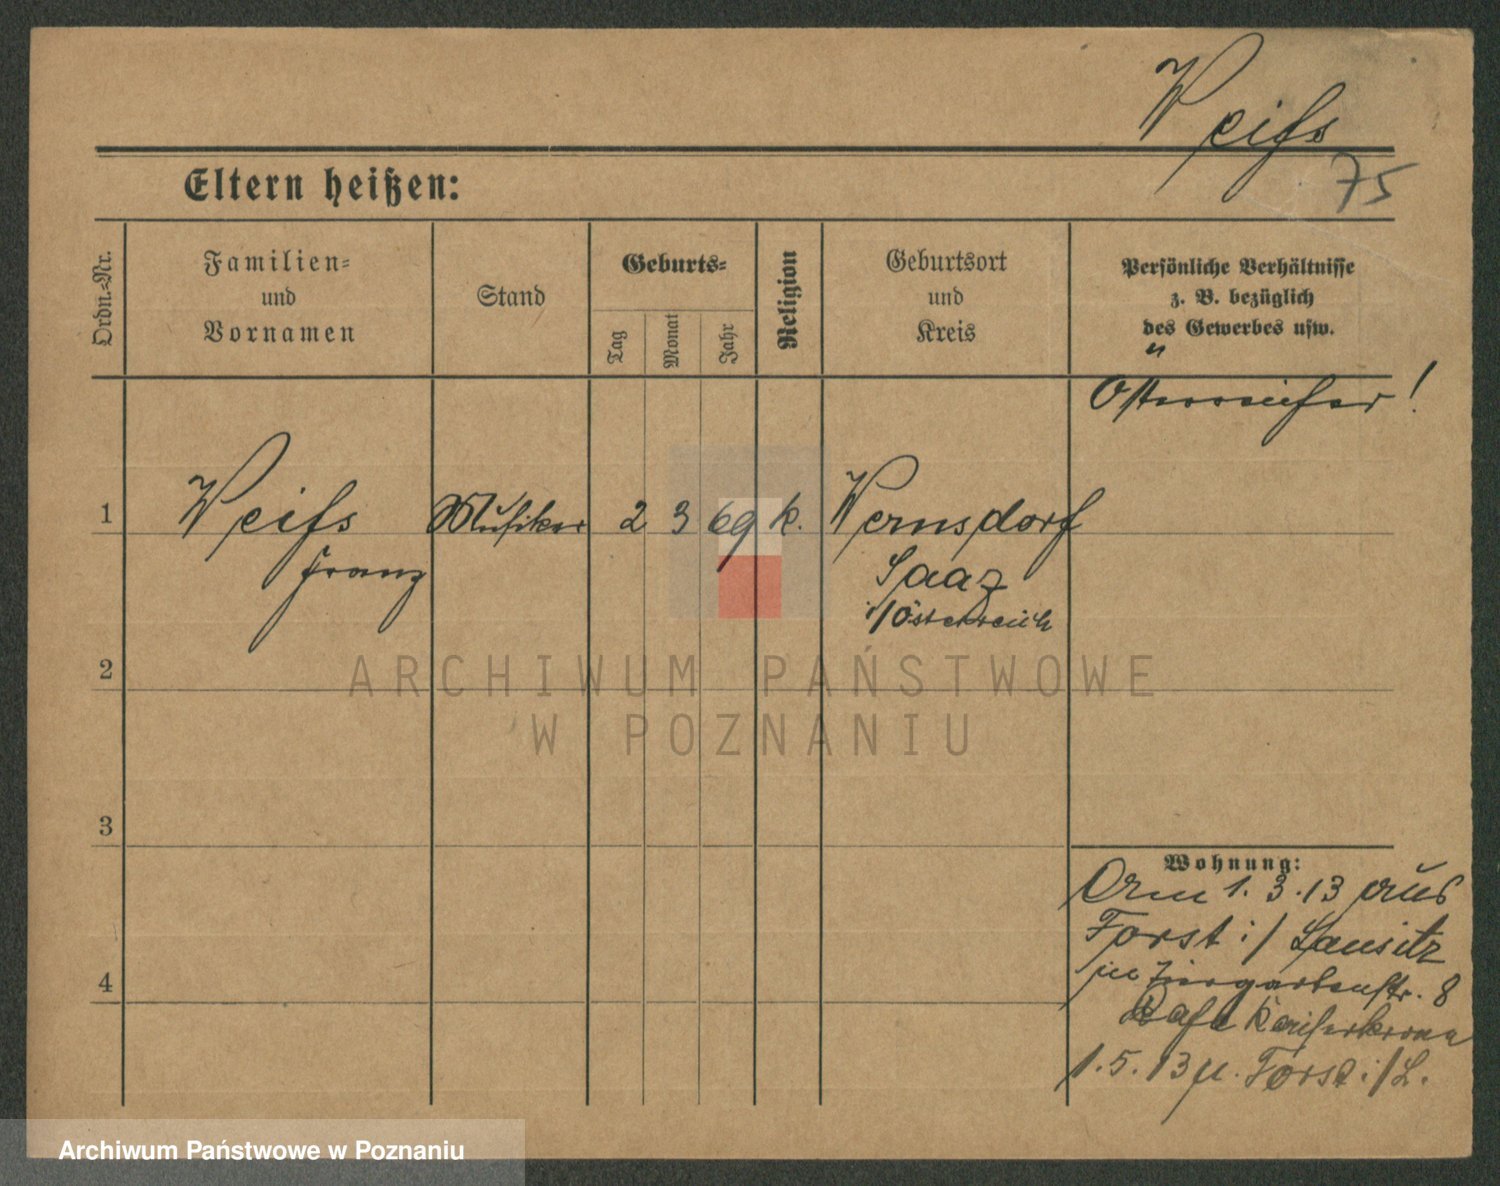 Weiſs
75
Eltern heißen:
Ordn.-Nr.
Familien-
und
Vornamen
Stand
Geburts-
Tag
Monat
Jahr
Religion
Geburtsort
und
Kreis
Persönliche Verhältnisse
z. B. bezüglich
des Gewerbes usw.
Österreicher!
1 Weiſs Musiker 2 3 69 k. Wernsdorf
Franz
Saaz
i/Österreich
2
3
4
Wohnung:
Am 1.3.13 aus
Forst i/ Lausitz
in Tiergartenstr. 8
Kafe Kaiserkrone
1.5.13 n. Forst i/L.
ARCHIWUM PAŃSTWOWE
W POZNANIU
Archiwum Państwowe w Poznaniu